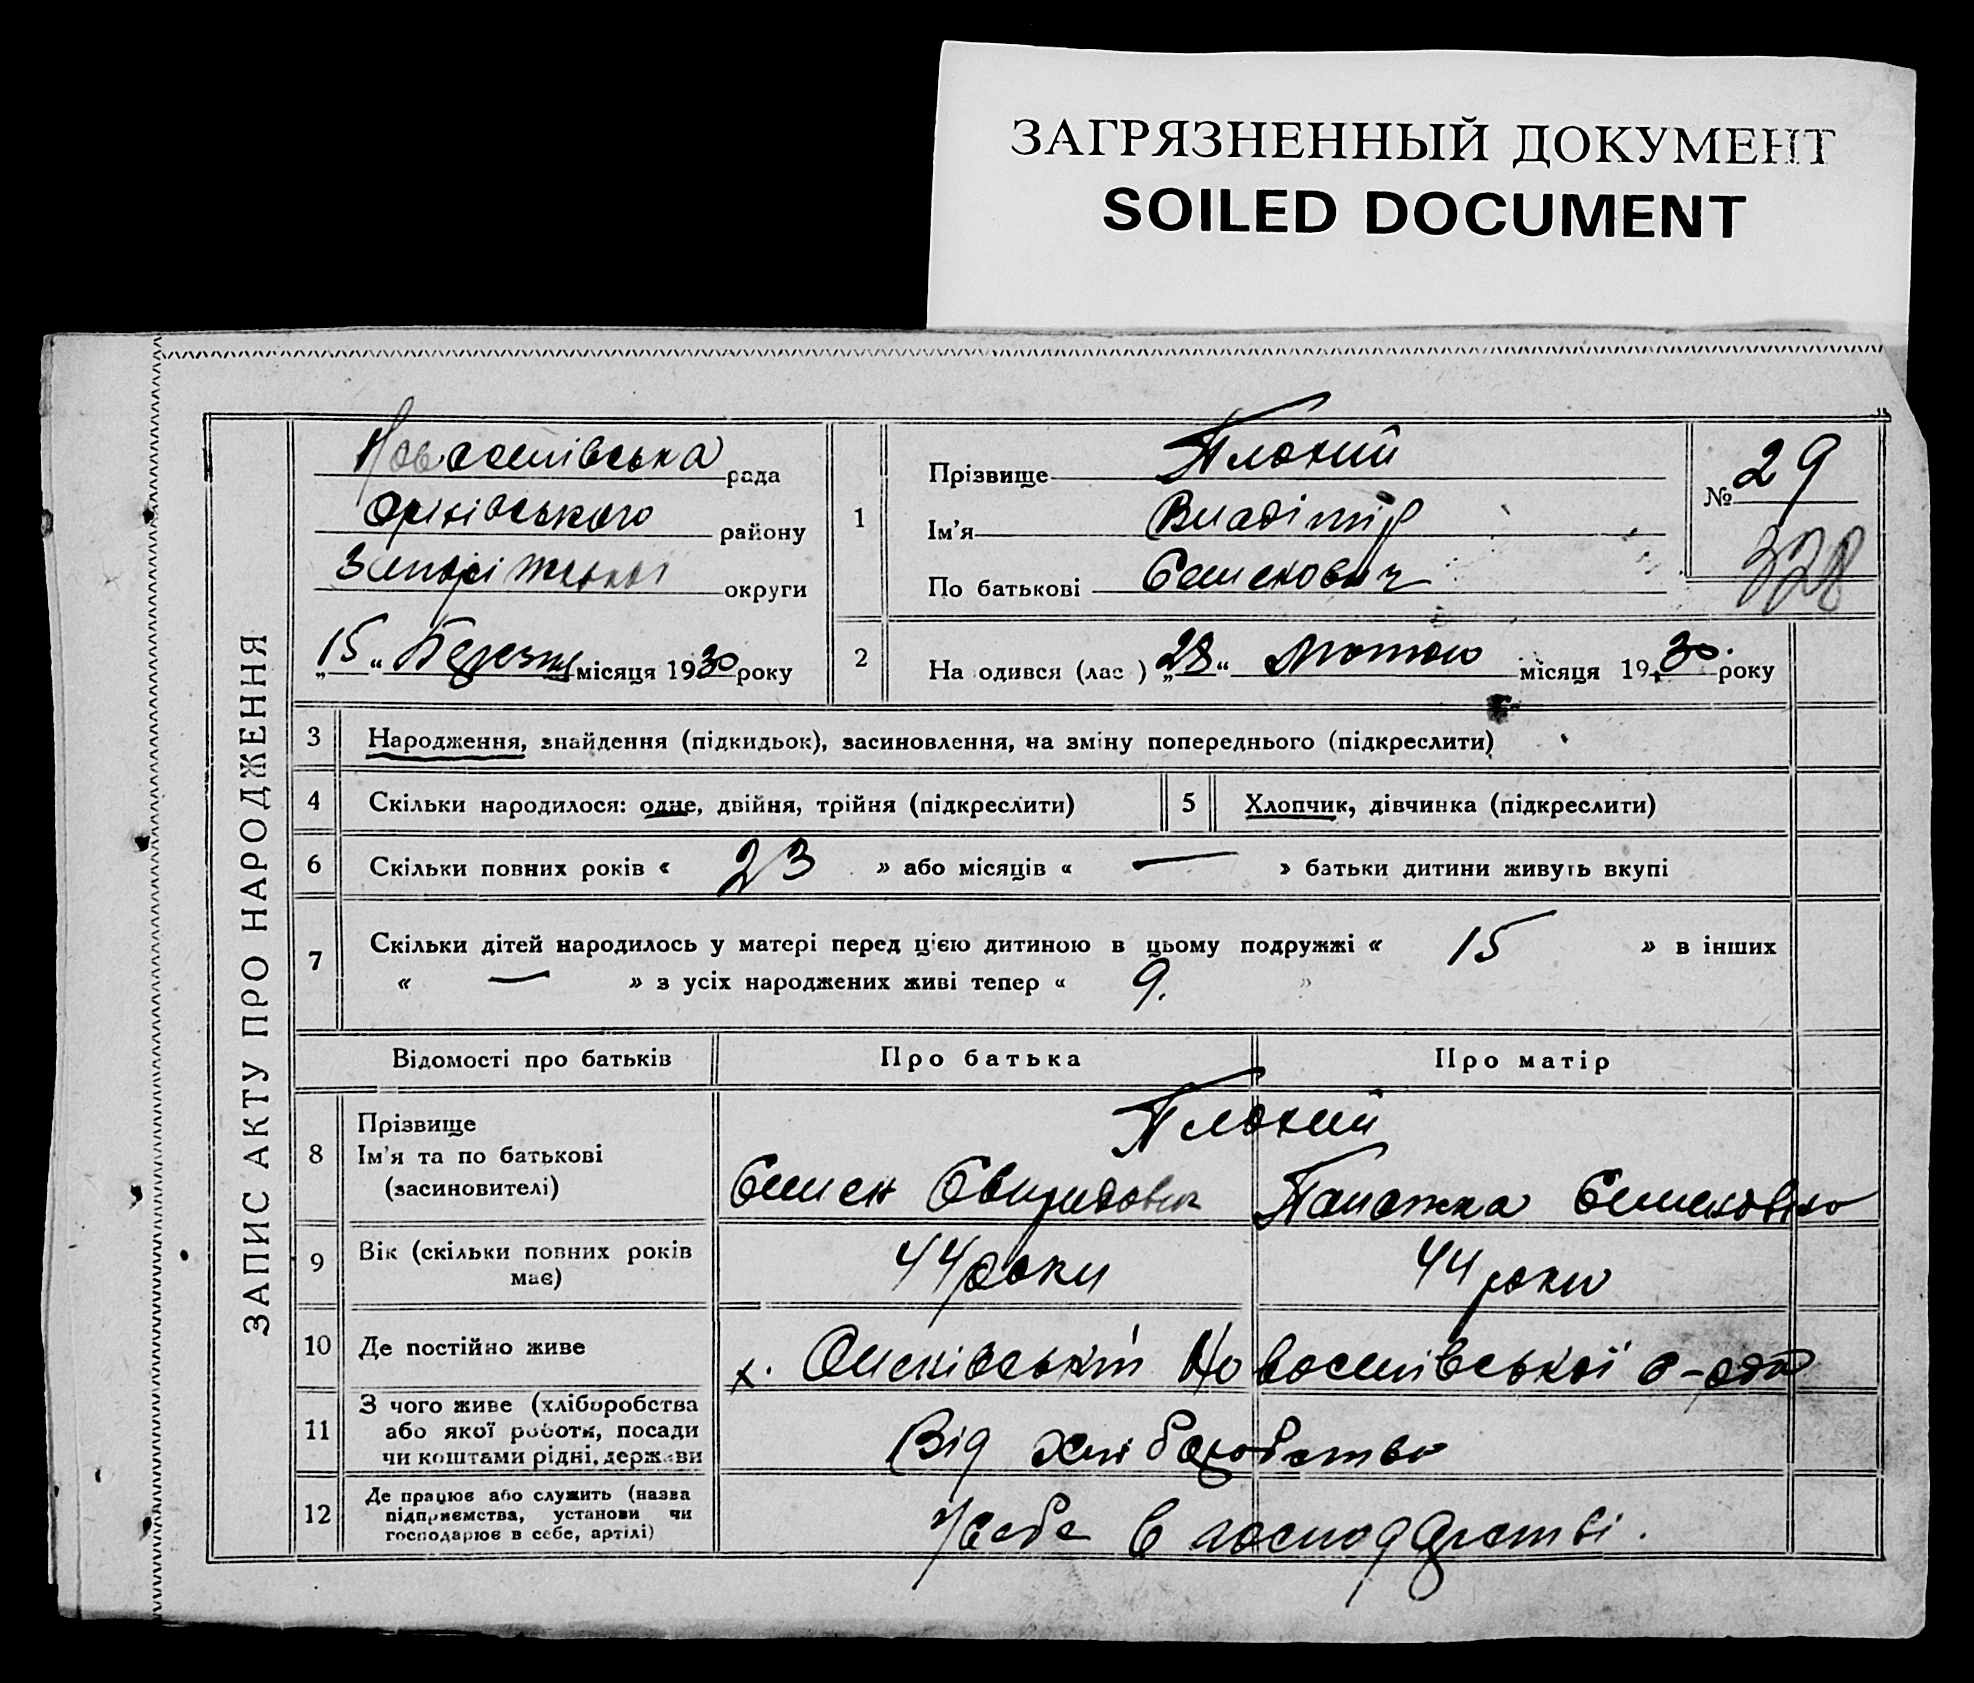 ЗАГРЯЗНЕННЫЙ ДОКУМЕНТ
SOILED DOCUMENT
ЗАПИС АКТУ ПРО НАРОДЖЕННЯ
Новоселівська рада
Оріхівського району
Запоріжської округи
„15“ Березня місяця 1930 року
1
Прізвище Плохий
Ім'я Владімір
По батькові Семенович
№ 29
328
2
На одився (лас ) „28“ Лютого місяця 1930 року
3 Народження, знайдення (підкидьок), засиновлення, на зміну попереднього (підкреслити)
4 Скільки народилося: одне, двійня, трійня (підкреслити) 5 Хлопчик, дівчинка (підкреслити)
6 Скільки повних років « 23 » або місяців « — » батьки дитини живуть вкупі
7 Скільки дітей народилось у матері перед цією дитиною в цьому подружжі « 15 » в інших
« — » з усіх народжених живі тепер « 9. »
Відомості про батьків Про батька Про матір
8 Прізвище
Ім'я та по батькові
(засиновителі)
Плохий
Семен Свиридович Палажка Семеновна
9 Вік (скільки повних років
має)
44 роки 44 роки
10 Де постійно живе
х. Новоселівської с-ради
11 З чого живе (хліборобства
або якої роботи, посади
чи коштами рідні, держави
Від хліборобства
12 Де працює або служить (назва
підприємства, установи чи
господарює в себе, артілі)
У себе в господарстві.